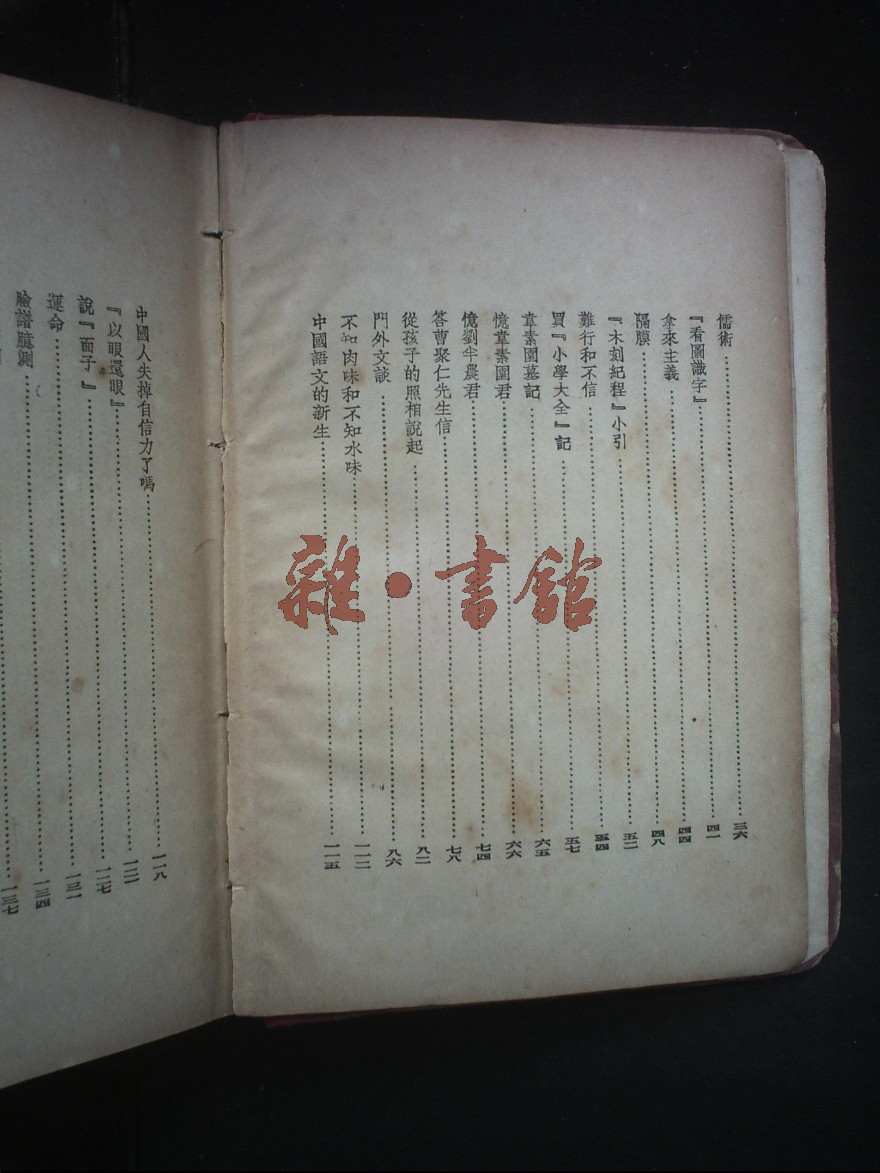 儒術⋯⋯三六
『看圖識字』⋯⋯四一
拿來主義⋯⋯四四
隔膜⋯⋯四八
『木刻紀程』小引⋯⋯五二
難行和不信⋯⋯五四
買『小學大全』記⋯⋯五七
韋素園墓記⋯⋯六五
憶韋素園君⋯⋯六六
憶劉半農君⋯⋯七四
答曹聚仁先生信⋯⋯七八
從孩子的照相說起⋯⋯八二
門外文談⋯⋯八六
不知肉味和不知水味⋯⋯一一二
中國語文的新生⋯⋯一一五
中國人失掉自信力了嗎⋯⋯一一八
『以眼還眼』⋯⋯一二一
說『面子』⋯⋯一二七
運命⋯⋯一三一
臉譜臆測⋯⋯一三四
一三七
雜·書館